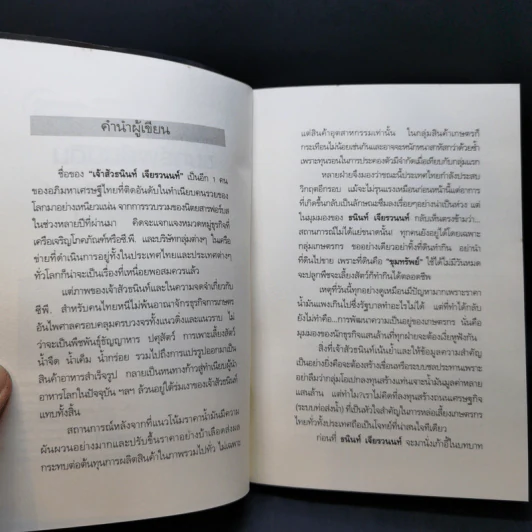 คำนำผู้เขียน
ชื่อของ "เจ้าสัวธนินท์ เจียรวนนท์" เป็นอีก 1 คน
ของอภิมหาเศรษฐีไทยที่ติดอันดับในทำเนียบคนรวยของ
โลกมาอย่างเหนียวแน่น จากการรวบรวมของนิตยสารฟอร์บส
ในช่วงหลายปีที่ผ่านมา คิดจะแจกแจงหมวดหมู่ธุรกิจที่
เครือเจริญโภคภัณฑ์หรือซี.พี. และบริษัทกลุ่มต่างๆ ในเครือ
ข่ายที่ดำเนินการอยู่ทั้งในประเทศไทยและประเทศต่างๆ
ทั่วโลกก็น่าจะเป็นเรื่องที่เหนื่อยพอสมควรแล้ว
แต่ภาพของเจ้าสัวธนินท์และในความจดจำเกี่ยวกับ
ซีพี. สำหรับคนไทยหนีไม่พ้นอาณาจักรธุรกิจการเกษตร
อันไพศาลครอบคลุมครบวงจรทั้งแนวดิ่งและแนวราบ ไม่
ว่าจะเป็นพืชพันธุ์ธัญญาหาร ปศุสัตว์ การเพาะเลี้ยงสัตว์
น้ำจืด น้ำเค็ม น้ำกร่อย รวมไปถึงการแปรรูปออกมาเป็น
สินค้าอาหารสำเร็จรูป กลายเป็นหนทางก้าวสู่ทำเนียบผู้นำ
อาหารโลกในปัจจุบัน ฯลฯ ล้วนอยู่ใต้ร่มเงาของเจ้าสัวธนินท์
แทบทั้งสิ้น
สถานการณ์หลังจากที่แนวโน้มราคาน้ำมันมีความ
ผันผวนอย่างมากและปรับขึ้นราคาอย่างบ้าเลือดส่งผล
กระทบต่อต้นทุนการผลิตสินค้าในภาพรวมไปทั่ว ไม่เฉพาะ
แต่สินค้าอุตสาหกรรมเท่านั้น ในกลุ่มสินค้าเกษตรก็
กระเทือนไม่น้อยเช่นกันและอาจจะหนักหนาสาหัสกว่าด้วยซ้ำ
เพราะทุนรอนในการประคองตัวมีจำกัดเมื่อเทียบกับกลุ่มแรก
หลายฝ่ายจึงมองว่าขณะนี้ประเทศไทยกำลังประสบ
วิกฤตอีกรอบ แม้จะไม่รุนแรงเหมือนก่อนหน้านี้แต่อาการ
ที่เกิดขึ้นกลับเป็นลักษณะซึมลงเรื่อยๆอย่างน่าเป็นห่วง แต่
ในมุมมองของ ธนินท์ เจียรวนนท์ กลับเห็นตรงข้ามว่า...
สถานการณ์ไม่ได้แย่ขนาดนั้น! ทุกคนยังอยู่ได้โดยเฉพาะ
กลุ่มเกษตรกร ขออย่างเดียวอย่าทิ้งที่ดินทำกิน อย่านำ
ที่ดินไปขาย เพราะที่ดินคือ "ขุมทรัพย์" ใช้ได้ไม่มีวันหมด
จะปลูกพืชจะเลี้ยงสัตว์ก็ทำกินได้ตลอดชีพ
เหตุที่วันนี้ทุกอย่างดูเหมือนมีปัญหามากเพราะราคา
น้ำมันแพงเกินไปซึ่งรัฐบาลทำอะไรไม่ได้ แต่ที่ทำได้กลับ
ยังไม่ทำคือ...การพัฒนาความเป็นอยู่ของเกษตรกร นั่นคือ
มุมมองของนักธุรกิจแสนล้านที่ทุกฝ่ายจะต้องเงี่ยหูฟังกัน
สิ่งที่เจ้าสัวธนินท์เน้นย้ำและให้ข้อมูลความสำคัญ
เป็นอย่างยิ่งคือจะต้องสร้างเขื่อนหรือระบบชลประทาน เพราะ
อย่าลืมว่ากลุ่มโอเปกลงทุนสร้างแท่นเจาะน้ำมันมูลค่าหลาย
แสนล้าน แต่ทำไมเราไม่คิดที่ลงทุนสร้างถนนเศรษฐกิจ
(ระบบท่อส่งน้ำ) ที่เป็นหัวใจสำคัญในการหล่อเลี้ยงเกษตรกร
ไทยทั่วทั้งประเทศถือเป็นโจทย์ที่น่าสนใจทีเดียว
ก่อนที่ ธนินท์ เจียรวนนท์ จะมานั่งเก้าอี้ในบทบาท